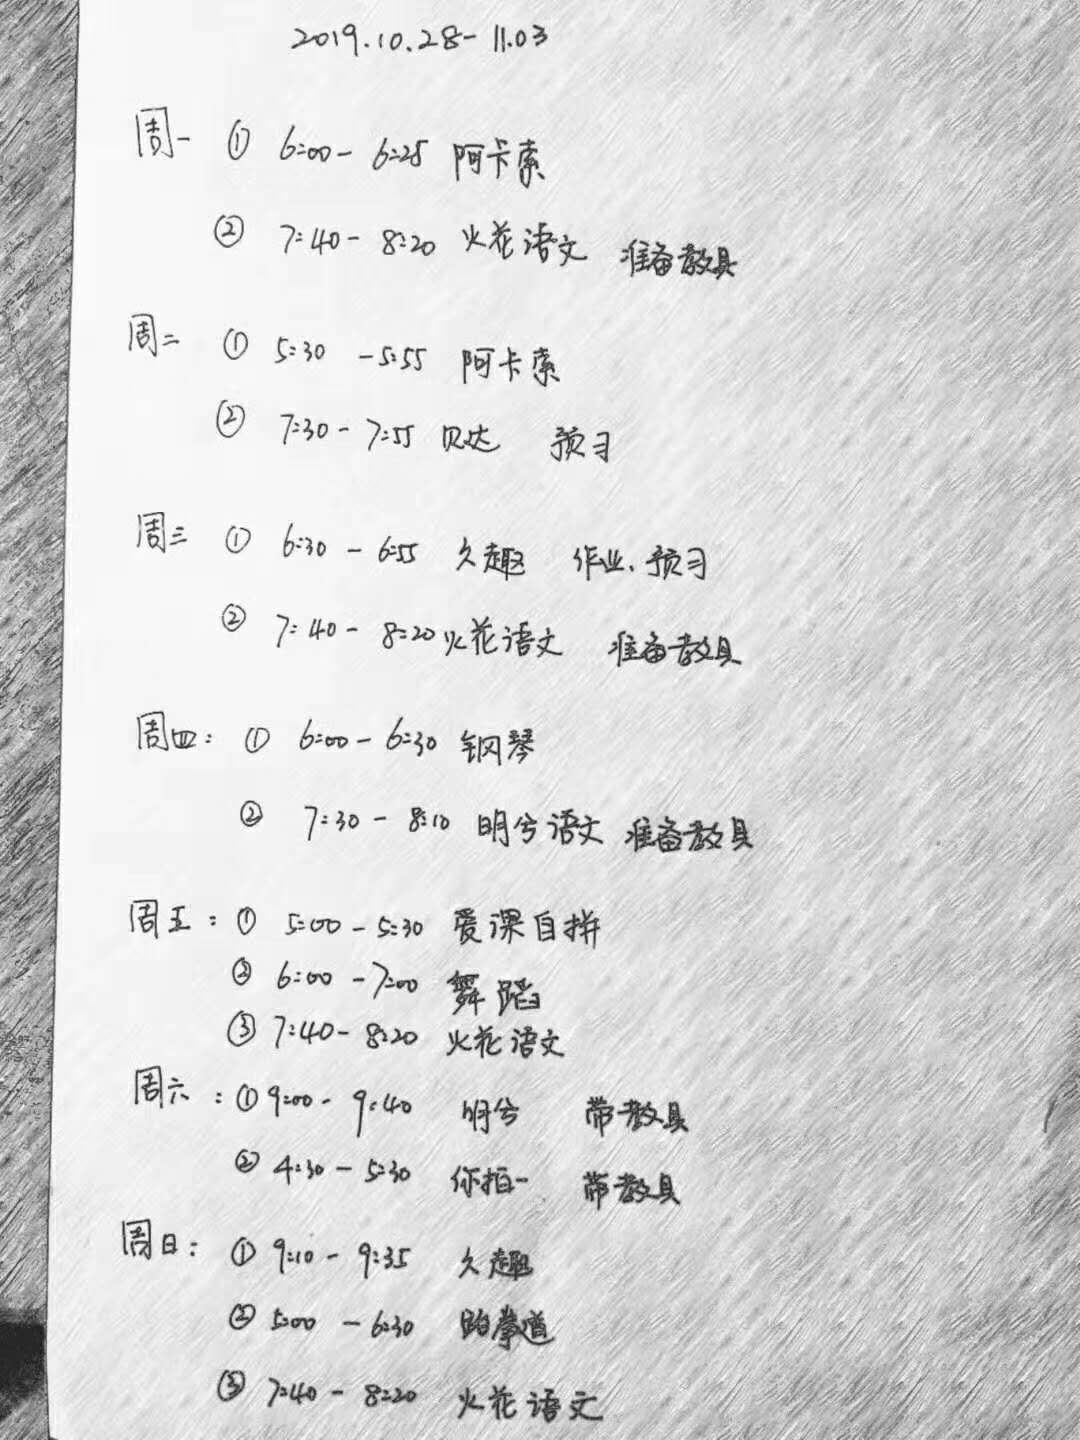 2019.10.28-11.03
周一 ① 6:00-6:25 阿卡索
② 7:40-8:20 火花语文 准备教具
周二 ① 5:30-5:55 阿卡索
② 7:30-7:55 贝达 预习
周三 ① 6:30-6:55 久趣 作业、预习
② 7:40-8:20 火花语文 准备教具
周四: ① 6:00-6:30 钢琴
② 7:30-8:10 明兮语文 准备教具
周五: ① 5:00-5:30 爱课自拼
② 6:00-7:00 舞蹈
③ 7:40-8:20 火花语文
周六: ① 9:00-9:40 明兮 带教具
② 4:30-5:30 你拍一 带教具
周日: ① 9:10-9:35 久趣
② 5:00-6:30 跆拳道
③ 7:40-8:20 火花语文